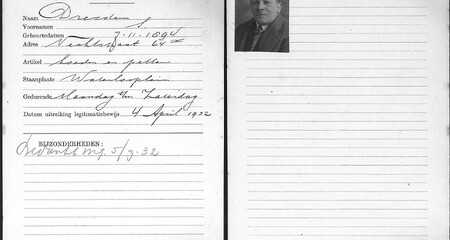 Naam Dresden
Voornamen S.
Geboortedatum 7-11-1894
Adres 64
Artikel hoeden en petten
Staanplaats Waterlooplein
Gedurende Maandag t/m Zaterdag
Datum uitreiking legitimatiebewijs 4 April 1922
BIJZONDERHEDEN:
5/9-32